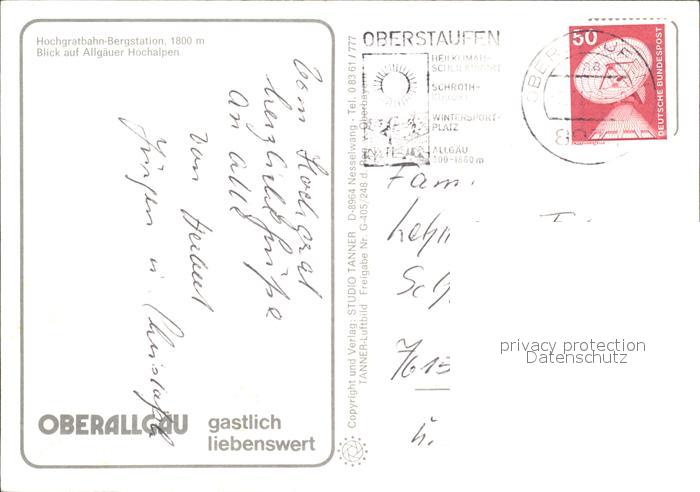 Hochgratbahn-Bergstation, 1800 m
Blick auf Allgäuer Hochalpen.
Vom Hochgrat
herzliche Grüße
an alle
von Herbert
Jürgen u. Christoph
OBERALLGÄU gastlich
liebenswert
Copyright und Verlag: STUDIO TANNER D-8964 Nesselwang - Tel. 0 83 61/777
TANNER-Luftbild Freigabe Nr. G-405/248 d. Oberbayern
OBERSTAUFEN
HEILKLIMA-
SCHROTH-
WINTERSPORT-
PLATZ
ALLGÄU
50
DEUTSCHE BUNDESPOST
Fam
7615
privacy protection
Datenschutz